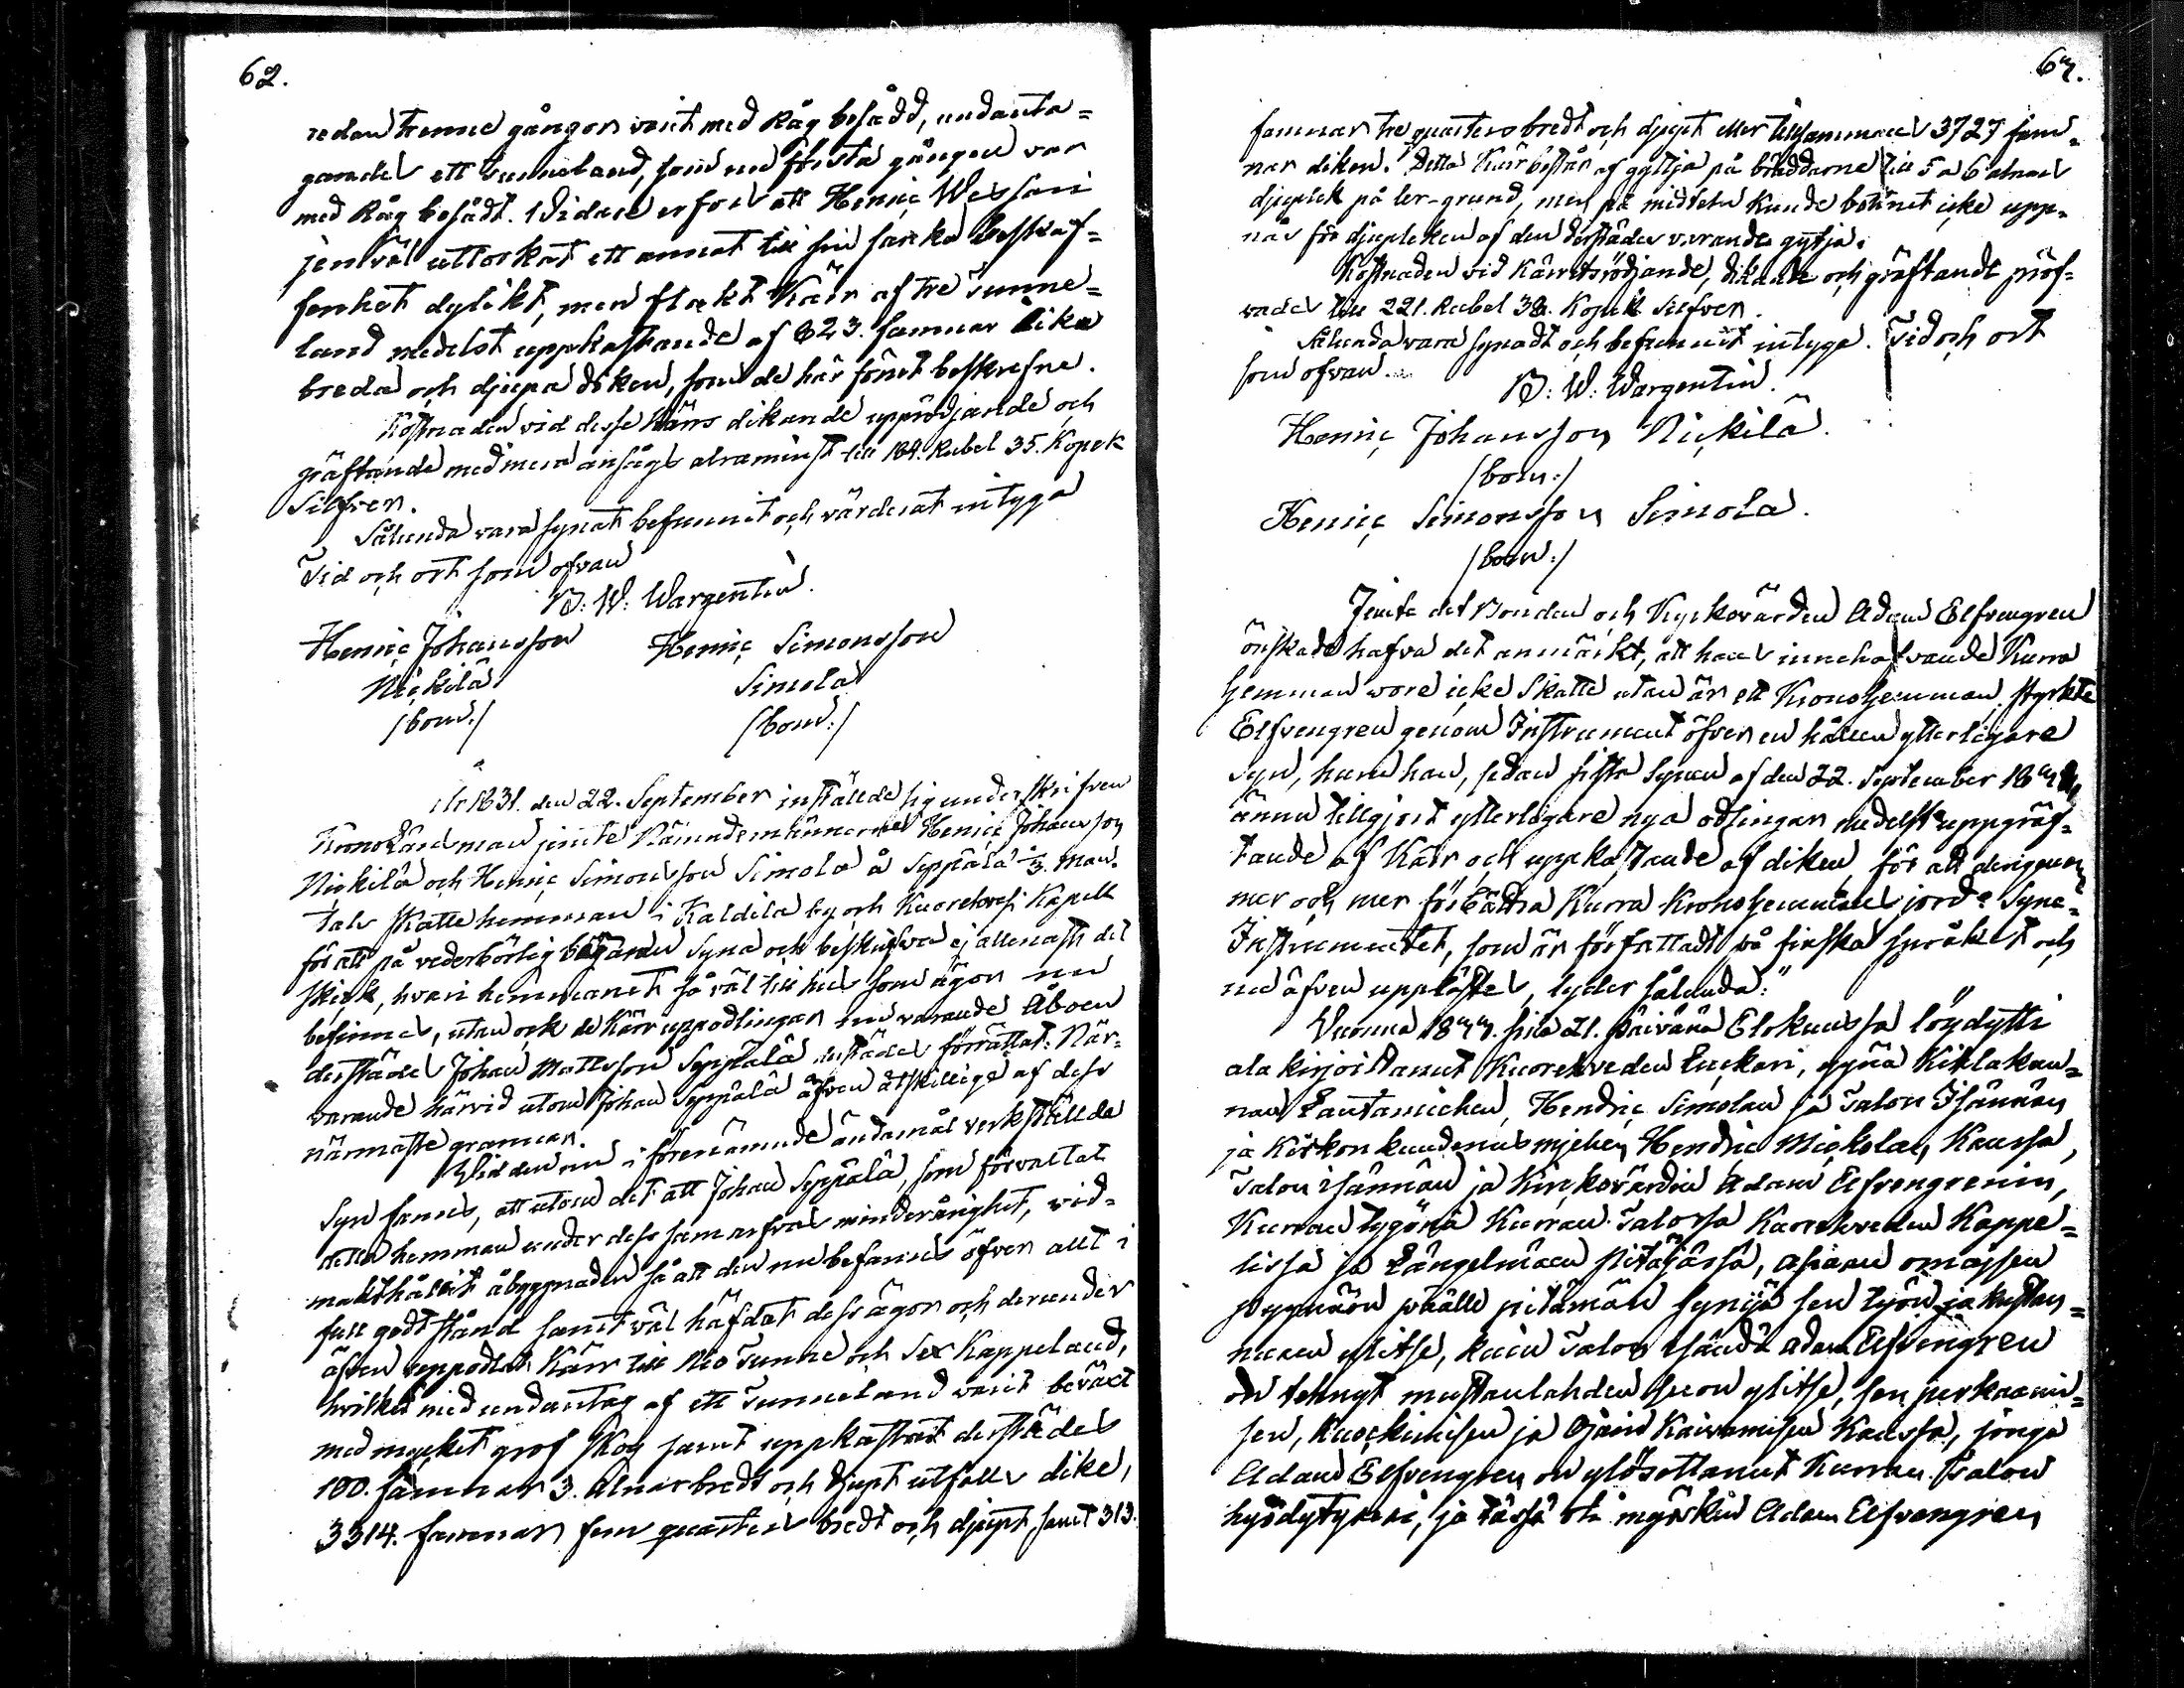 62.
redan trenne gångor varit med Råg besådd, undanta=
gandes ett tunneland, som nu första gången var
med Råg besådt. Vidare erfors att Henric Wessari
jemväl uttorkat ett annat till sin sanka beskaf=
fenhet dylikt, men flakt Kärr af tre Tunne=
land medelst uppkastande af 823. famnar lika
breda och djupa diken, som de här förut beskrefne.
Kostnaden vid desse Kärrs dikande upprödjande och
gräftande med mera ansågs alraminst till 184. Rubel 35. Kopek
Silfver.
Sålunda vara synat befunnit och värderat intyga
Tid och ort som ofvan
B: W: Wargentin.
Henric Johansson Henric Simonsson
Nickilä Simola
/bom:/ /bom:/
År 1831. den 22. September instälde sig underskrifven
Kronolänsman jemte Nämndemännerne Henric Johansson
Nickilä och Henric Simonsson Simola å Seppälä 1/3. Man=
tals Skatte hemman i Kaldila by och Kuorehvesi Kapell
för att på vederbörlig begäran syna och beskrifva ej allenast det
skick, hvari hemmanet så väl till hus som ägor nu
befinnes, utan ock de Kärr uppodlingar nu varande Åboen
derstädes Johan Mattsson Seppälä derstädes förrättat: När=
varande härvid utom Johan Seppälä äfven åtskillige af dess
närmaste grannar.
Vid den nu i förenämnde ändamål verkstälda
Syn fanns, att utom det att Johan Seppälä, som förvaltat
detta hemman under dess samarfvas minderårighet, vid=
makthållit åbyggnaden så att den nu befanns öfver allt i
full godt stånd samt väl häfdat dess ägor och derunder
äfven uppodlat Kärr till Nio Tunne och Sex Kappeland,
hvilket med undantag af ett Tunneland varit beväxt
med mycket grof skog samt uppkastat derstädes
100. famnar 3. Alnar bredt och djupt utfalls dike,
3314. famnar fem quarters bredt och djupt, samt 313.
63.
famnar tre quarters bredt och djupt eller tillsammans 3727 fam=
nar diken. Detta Kärr består af gyttja på bräddarne till 5 a 6 alnars
djuplek på ler-grund, men på midten kunde bottnet icke upp=
nås för djupleken af den derstädes varande gyttja.
Kostnaden vid Kärrets rödjande, dikande och gräftande pröf=
vades till 221. Rubel 38. Kopek Silfver.
Sålunda vara synadt och befunnit intyga. Tid och ort
som ofvan.
B: W: Wargentin.
Henric Johansson Nickilä.
/bom:/
Henric Simonsson Simola.
/bom:/
Jemte det Bonden och Kyrkovärden Adam Elfvengren
önskade hafva det anmärkt, att hans innehafvande Kurra
hemman vore icke Skatte utan är ett Kronohemman, styrkte
Elfvengren genom Instrument öfver en hållen ytterligare
syn, huru han, sedan sista synen af den 22. September 1831,
ännu tillgjort ytterligare nya odlingar medelst uppgräf=
tande af Kärr och uppkastande af diken, för att derigenom
mer och mer förbättra Kurra Kronohemmans jord: Syne=
Instrumentet, som är författadt på finska språket och
nu äfven upplästes, lyder sålunda:"
Vuonna 1833. sinä 21. päivänä Elokuussa löydytti
ala kirjoittanut Kuorehveden Luckari, ynnä Kihlakun=
nan Lautamiehen, Hendric Simolan ja Talon Isännän
ja Kirkon kuudennusmiehen Hendric Mickolan, Kanssa,
Talon isännän ja Kirckovärdin Adam Elfvengrenin,
Kurran tygönä Kurran Talossa Kuorehveden Kappe=
lissa ja Längelmäen Pitäjässä, asian omaisen
pygnnön päälle pitämän synijä sen työn ja kustan=
nuxen ylitse, kuin Talon Isändä Adam Elfvengren
on tehnyt mustanlahden suon ylitse, sen perkaami=
sen, Kuockimisen ja Ojain Kaivamisen Kanssa, jonga
Adam Elfvengren on ylösottanut Kurran Talon
hyödytyxexi, ja tässä oli myöskin Adam Elfvengren